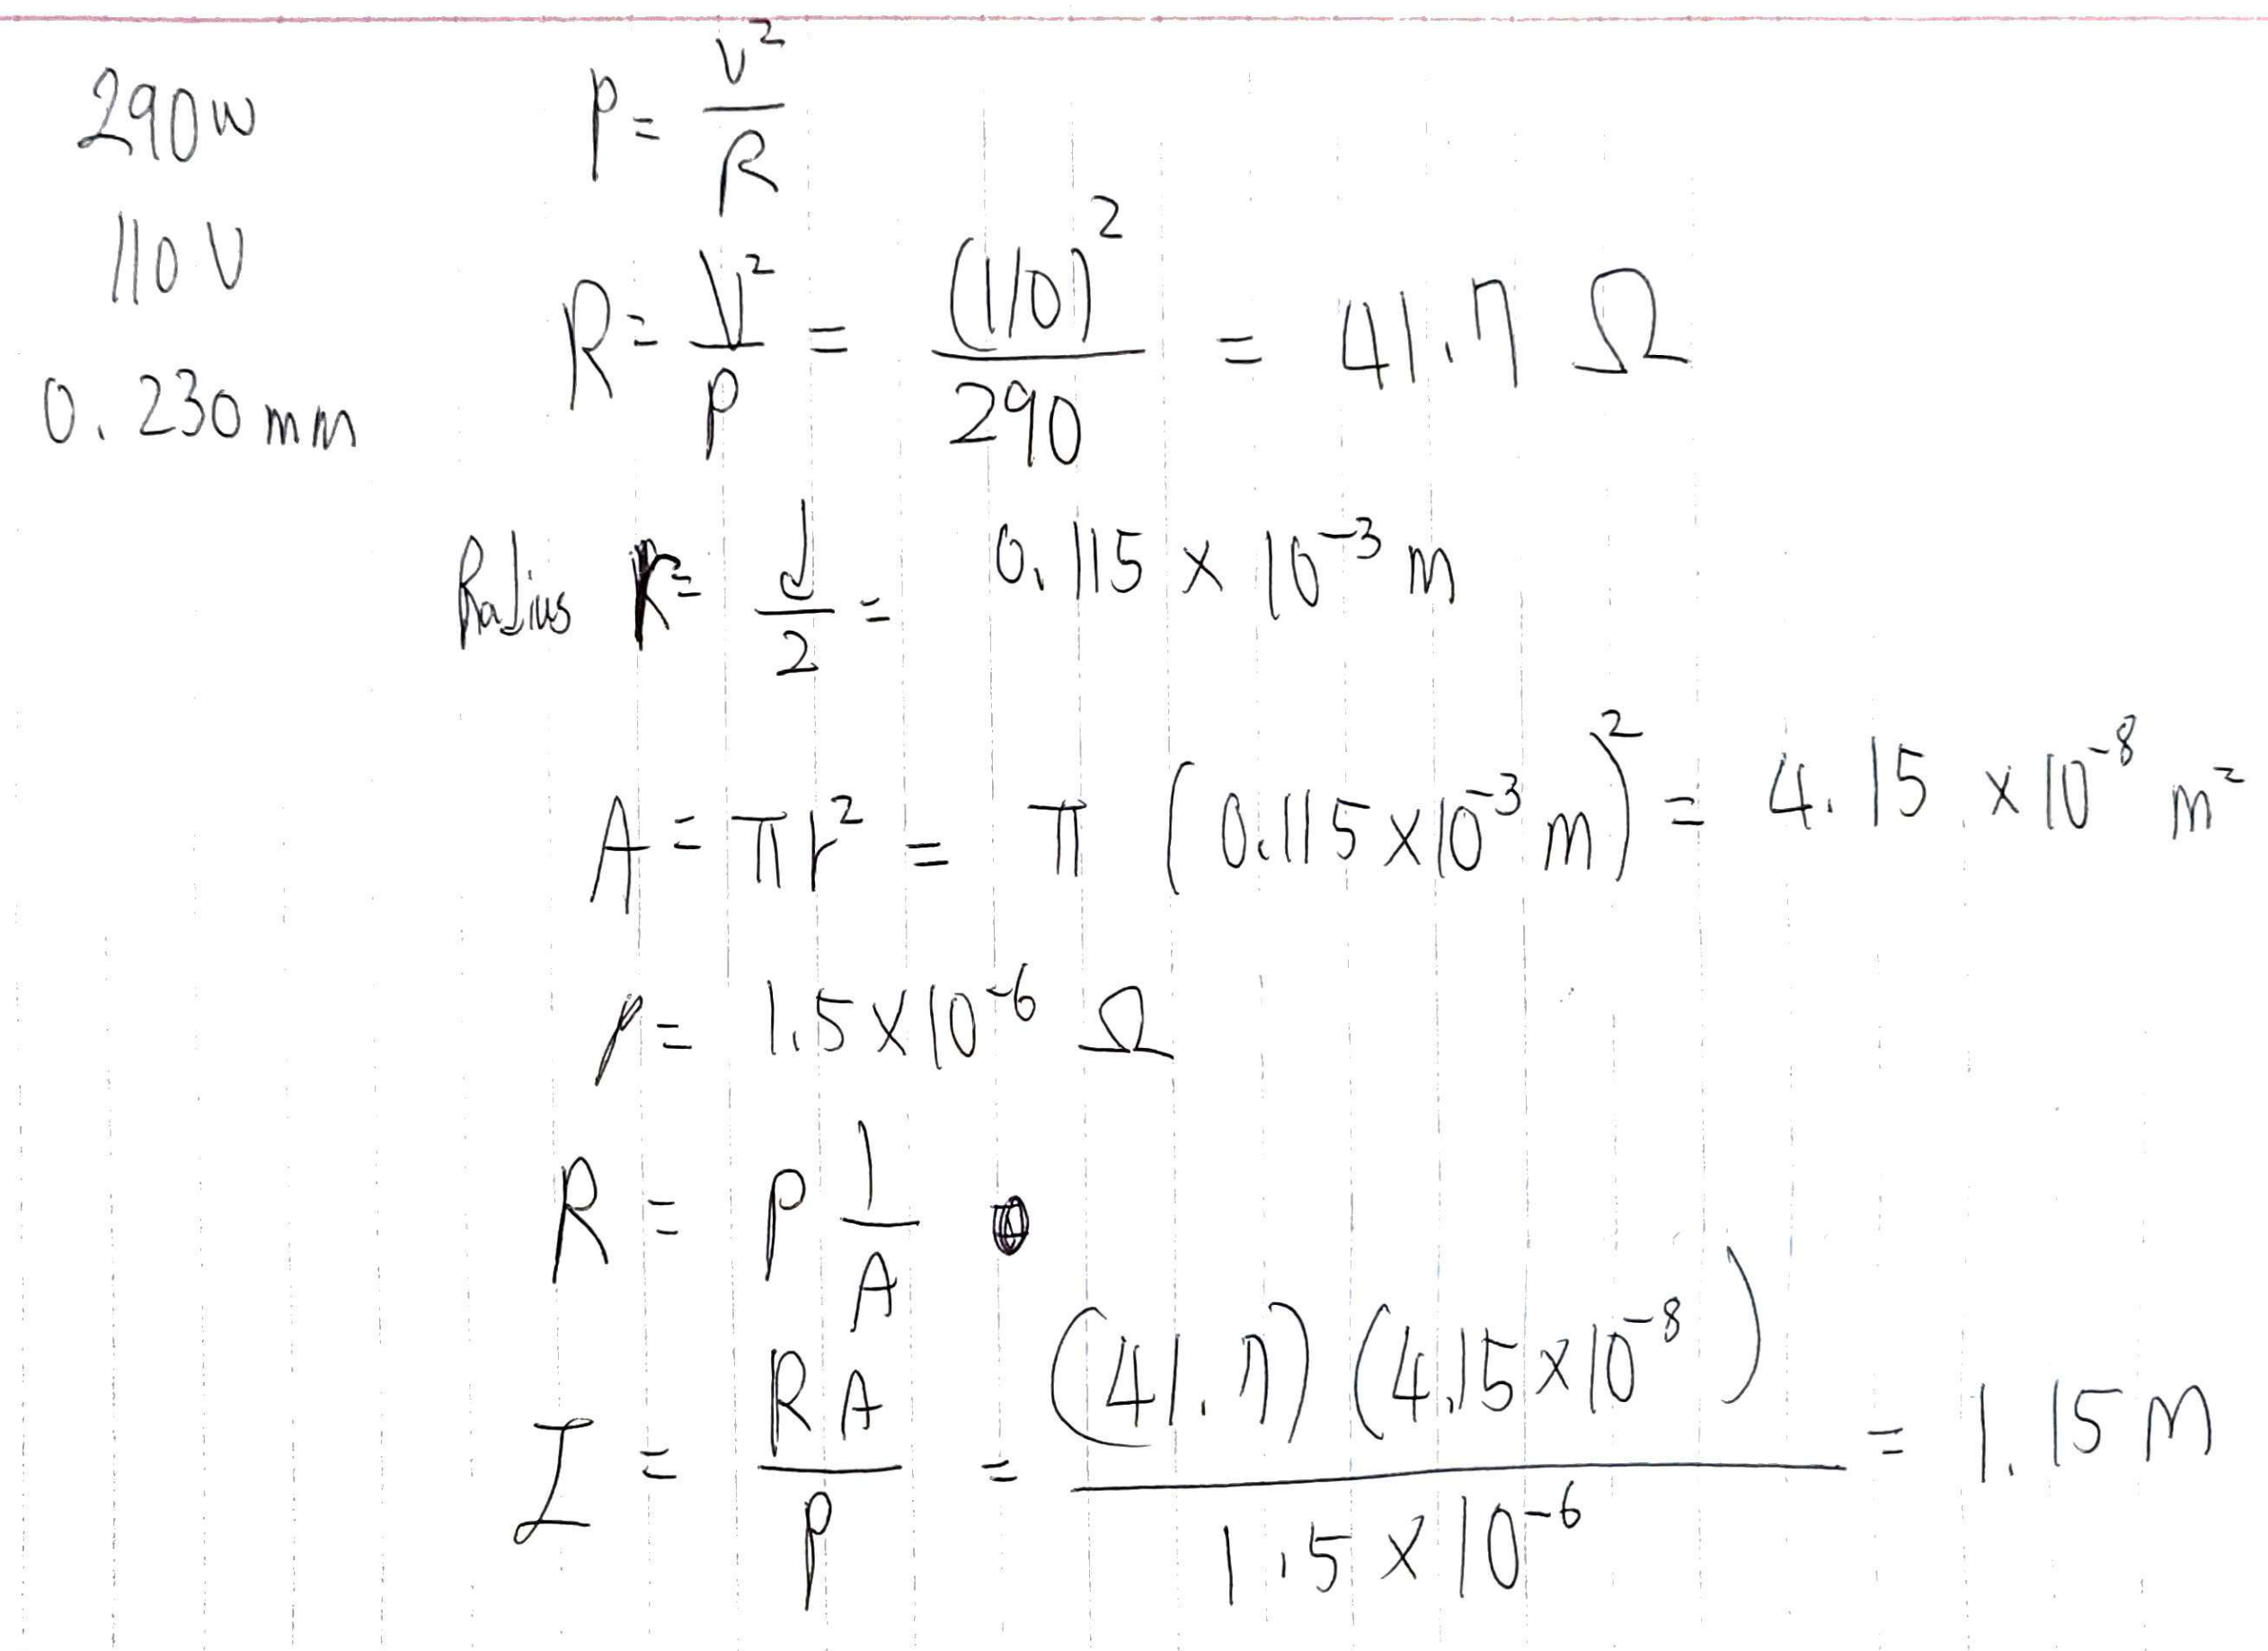 290W
110V
0.230mm
P = V²/R
R = V²/P = (110)²/290 = 41.7 Ω
Radius r = d/2 = 0.115 × 10⁻³ m
A = πr² = π (0.115×10⁻³ m)² = 4.15 × 10⁻⁸ m²
ρ = 1.5×10⁻⁶ Ω
R = ρ l/A
L = RA/ρ = (41.7)(4.15×10⁻⁸)/1.5×10⁻⁶ = 1.15 m